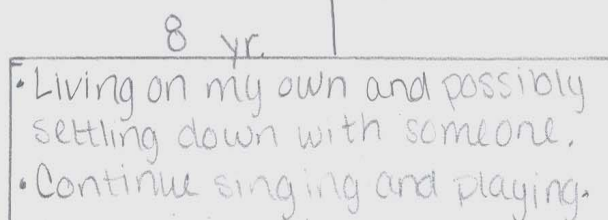 8 yr.
• Living on my own and possibly
settling down with someone.
• Continue singing and playing.